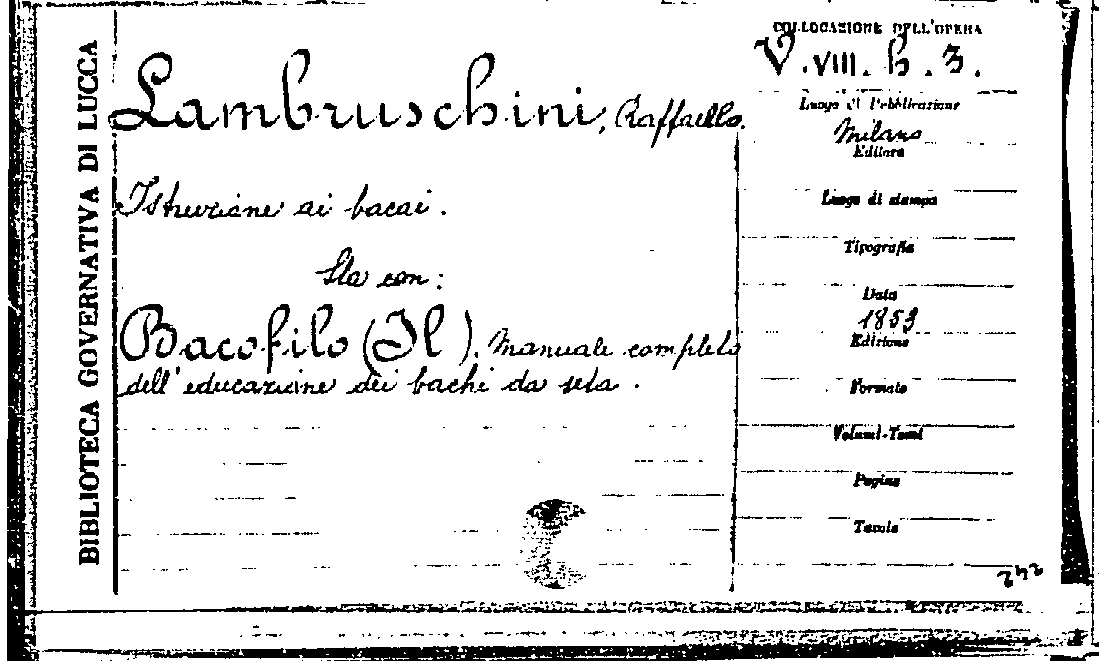 BIBLIOTECA GOVERNATIVA DI LUCCA
Lambruschini, Raffaello.
Istruzione ai bacai.
Sta con:
Bacofilo (Il). Manuale completo
dell'educazione dei bachi da seta.
COLLOCAZIONE DELL'OPERA
V. VIII. h. 3.
Luogo di Pubblicazione
Milano
Editore
Luogo di stampa
Tipografia
Data
1853
Edizione
Formato
Volumi-Tomi
Pagine
Tavole